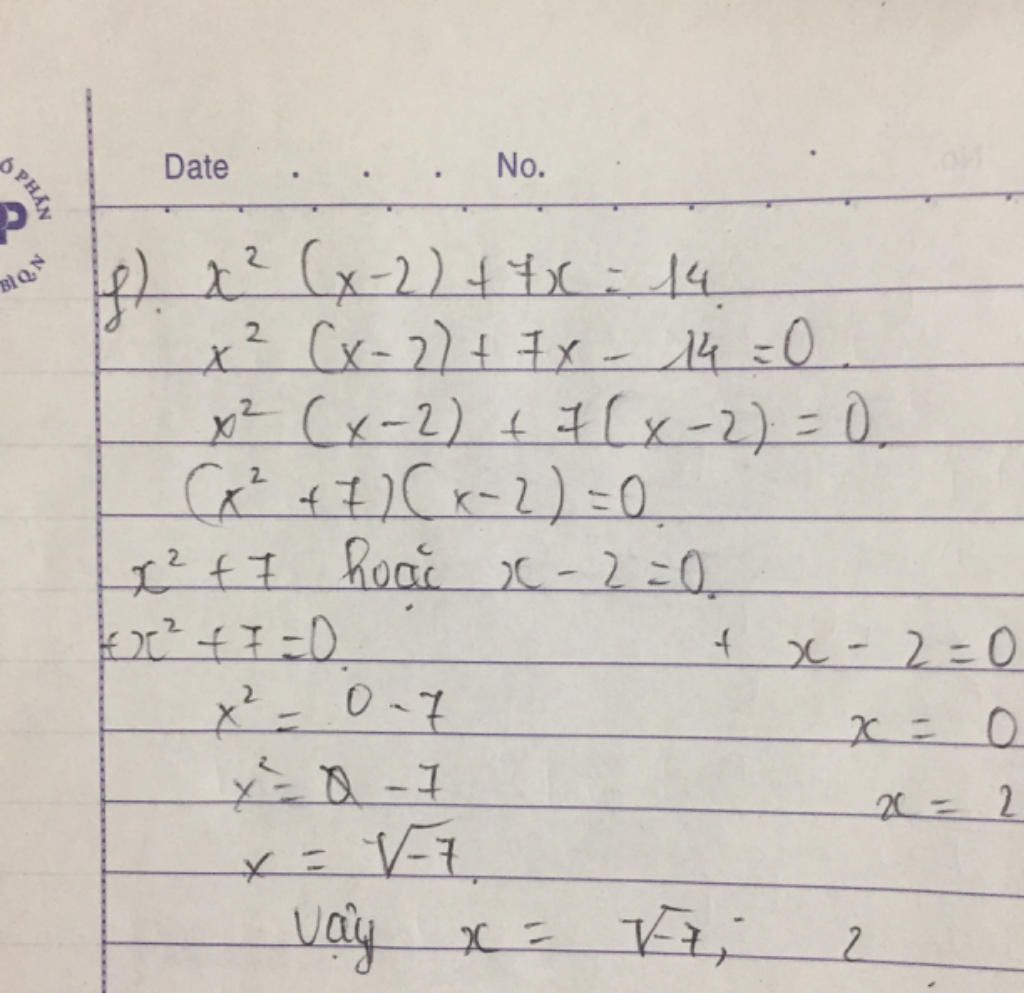 Ổ PHẦN
P
BÌ Q.N
Date . . . No.
f). x² (x-2) + 7x = 14.
x² (x-2) + 7x - 14 = 0.
x² (x-2) + 7(x-2) = 0.
(x² + 7)(x-2) = 0.
x² + 7 hoặc x - 2 = 0.
+x² + 7 = 0. + x - 2 = 0
x² = 0 - 7 x = 0
x² = - 7 x = 2
x = √-7.
Vậy x = √-7; 2